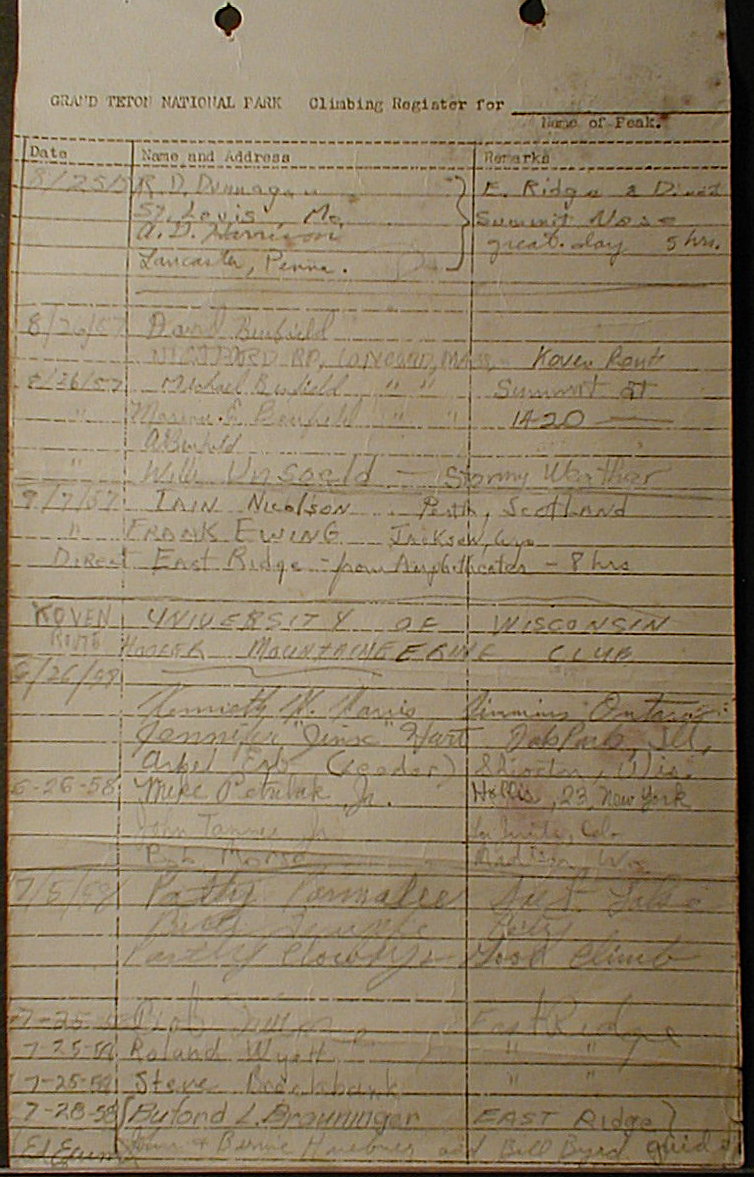 GRAND TETON NATIONAL PARK Climbing Register for
Name of Peak.
Date Name and Address Remarks
R.D. Dunnagan E. Ridge & Direct
St. Louis, Mo. Summit Nose
A.D. Harrison great day 5 hrs.
Lancaster, Penna.
8/26/57 David
RD, CONCORD, MASS. Koven Route
8/26/57 Michael " " Summit at
" " " 1420
" Willi Unsoeld — Stormy Weather
9/7/57 IAIN NICOLSON Perth, SCOTLAND
" FRANK EWING Jackson, Wyo
Direct East Ridge - from Amphitheater - 8 hrs
KOVEN UNIVERSITY OF WISCONSIN
ROUTE HOOFER MOUNTAINEERING CLUB
6/26/58
Kenneth Timmins Ontario
Jennifer "Jinx" Hart Oak Park, Ill.
Erb (leader) Shiocton, Wis.
6-26-58 Mike Jr. Hollis, 23, New York
John Tanner Jr.
Bob Madison, Wis
7/5/58 Patty Parmalee Salt Lake
City
Partly Cloudy - Good Climb
7-25-58 Bob East Ridge
7-25-58 Roland Wyatt " "
7-25-58 Steve Brockbank " "
7-28-58 Buford L. Brauninger EAST Ridge
and Bill Byrd guide